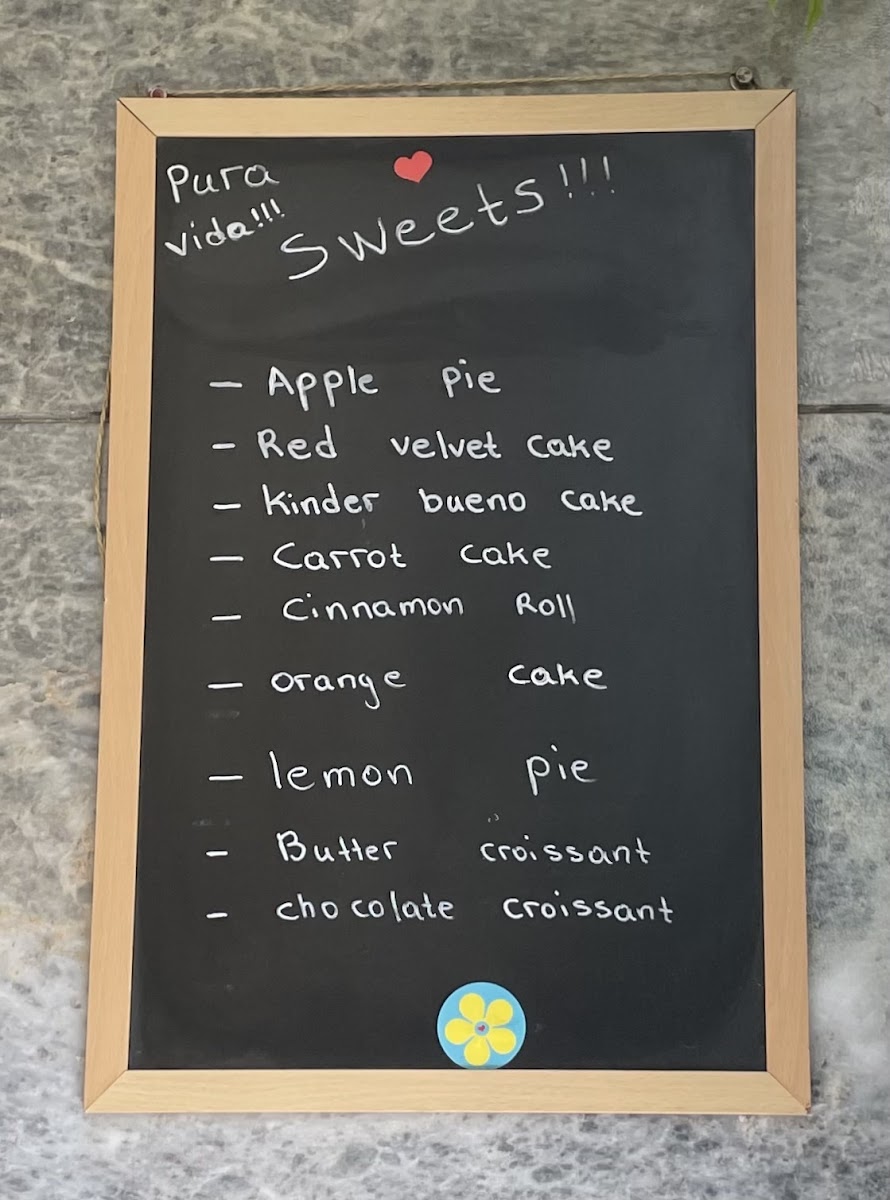 Pura
vida!!!
Sweets!!!
- Apple pie
- Red velvet cake
- Kinder bueno cake
- Carrot cake
- Cinnamon Roll
- orange cake
- lemon pie
- Butter croissant
- chocolate croissant